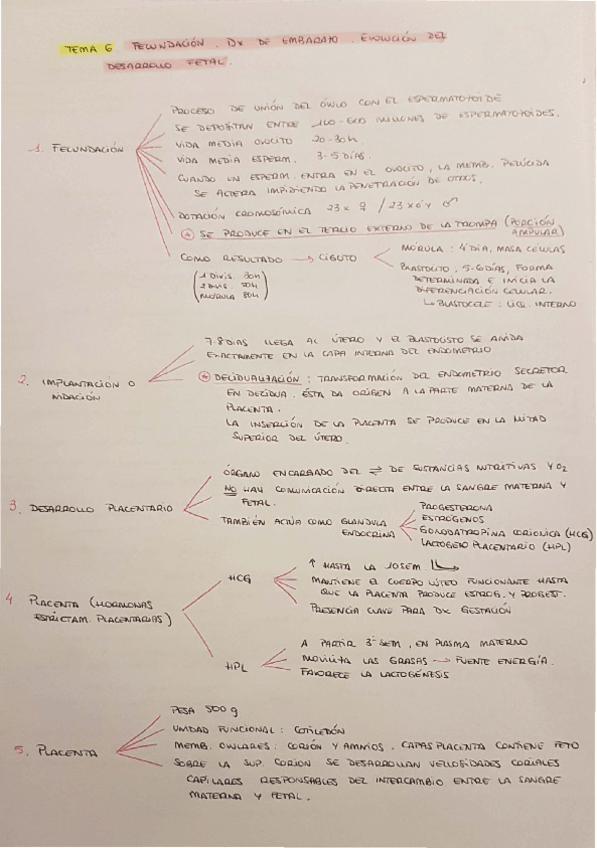 TEMA 6 FECUNDACIÓN. DX DE EMBARAZO. EVOLUCIÓN DEL
DESARROLLO FETAL.
1. FECUNDACIÓN
PROCESO DE UNIÓN DEL ÓVULO CON EL ESPERMATOZOIDE
SE DEPOSITAN ENTRE 100-600 MILLONES DE ESPERMATOZOIDES.
VIDA MEDIA OVOCITO 20-30h.
VIDA MEDIA ESPERM. 3-5 DÍAS.
CUANDO UN ESPERM. ENTRA EN EL OVOCITO, LA MEMB. PELÚCIDA
SE ALTERA IMPIDIENDO LA PENETRACIÓN DE OTROS.
DOTACIÓN CROMOSÓMICA 23x ♀ / 23x ó y ♂
* SE PRODUCE EN EL TERCIO EXTERNO DE LA TROMPA (PORCIÓN
AMPULAR)
COMO RESULTADO → CIGOTO
(1 DIVIS. 30h
2 DIVIS. 50h
MÓRULA 80h)
MÓRULA: 4 DÍA, MASA CÉLULAS
BLASTOCITO. 5-6 DÍAS, FORMA
DETERMINADA E INICIA LA
DIFERENCIACIÓN CELULAR.
↳ BLASTOCELE: LÍQ. INTERNO
2. IMPLANTACIÓN O
NIDACIÓN
7-8 DÍAS LLEGA AL ÚTERO Y EL BLASTOCISTO SE ANIDA
EXACTAMENTE EN LA CAPA INTERNA DEL ENDOMETRIO
* DECIDUALIZACIÓN: TRANSFORMACIÓN DEL ENDOMETRIO SECRETOR
EN DECIDUA. ÉSTA DA ORIGEN A LA PARTE MATERNA DE LA
PLACENTA.
LA INSERCIÓN DE LA PLACENTA SE PRODUCE EN LA MITAD
SUPERIOR DEL ÚTERO.
3. DESARROLLO PLACENTARIO
ÓRGANO ENCARGADO DEL ⇌ DE SUSTANCIAS NUTRITIVAS Y O2
NO HAY COMUNICACIÓN DIRECTA ENTRE LA SANGRE MATERNA Y
FETAL.
TAMBIÉN ACTÚA COMO GLÁNDULA
ENDOCRINA
PROGESTERONA
ESTRÓGENOS
GONODATROPINA CORIONICA (HCG)
LACTÓGENO PLACENTARIO (HPL)
4 PLACENTA (HORMONAS
ESTRICTAM. PLACENTARIAS)
HCG
↑ HASTA LA 10SEM
MANTIENE EL CUERPO LÚTEO FUNCIONANTE HASTA
QUE LA PLACENTA PRODUCE ESTROG. Y PROGEST.
PRESENCIA CLAVE PARA DX GESTACIÓN
HPL
A PARTIR 3ª SEM, EN PLASMA MATERNO
MOVILIZA LAS GRASAS → FUENTE ENERGÍA.
FAVORECE LA LACTOGÉNESIS
5. PLACENTA
PESA 500 g
UNIDAD FUNCIONAL: COTILEDÓN
MEMB. OVULARES: CORIÓN Y AMNIOS. CAPAS PLACENTA CONTIENE FETO
SOBRE LA SUP. CORION SE DESARROLLAN VELLOSIDADES CORIALES
CAPILARES RESPONSABLES DEL INTERCAMBIO ENTRE LA SANGRE
MATERNA Y FETAL.